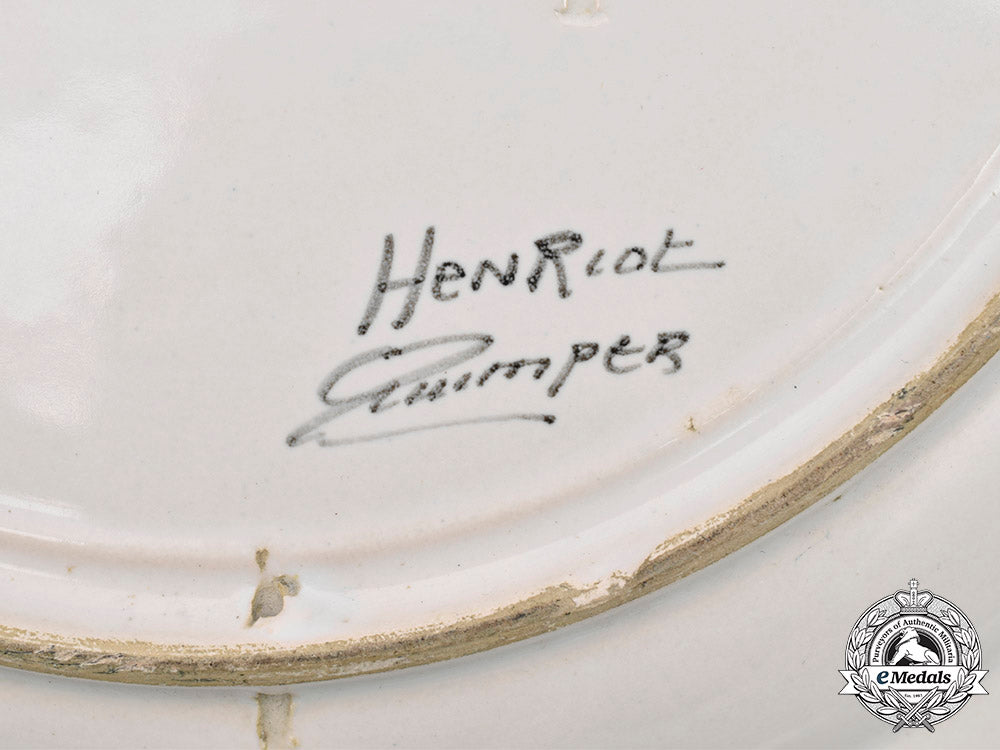 HENRIOT
QUIMPER
Purveyors of Authentic Militaria
eMedals